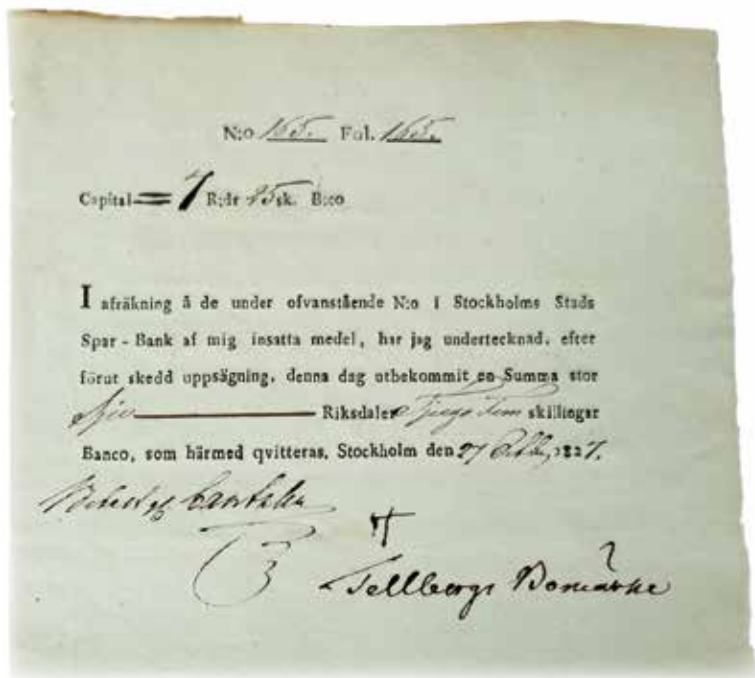 N:o 165. Fol. 165.
Capital 7 R:dr 25 sk. B:co
I afräkning å de under ofvanstående N:o i Stockholms Stads
Spar-Bank af mig insatta medel, har jag undertecknad, efter
förut skedd uppsägning, denna dag utbekommit en Summa stor
Sju Riksdaler Tjugo Fem skillingar
Banco, som härmed qvitteras, Stockholm den 27 1827.
Tellbergs Bomärke